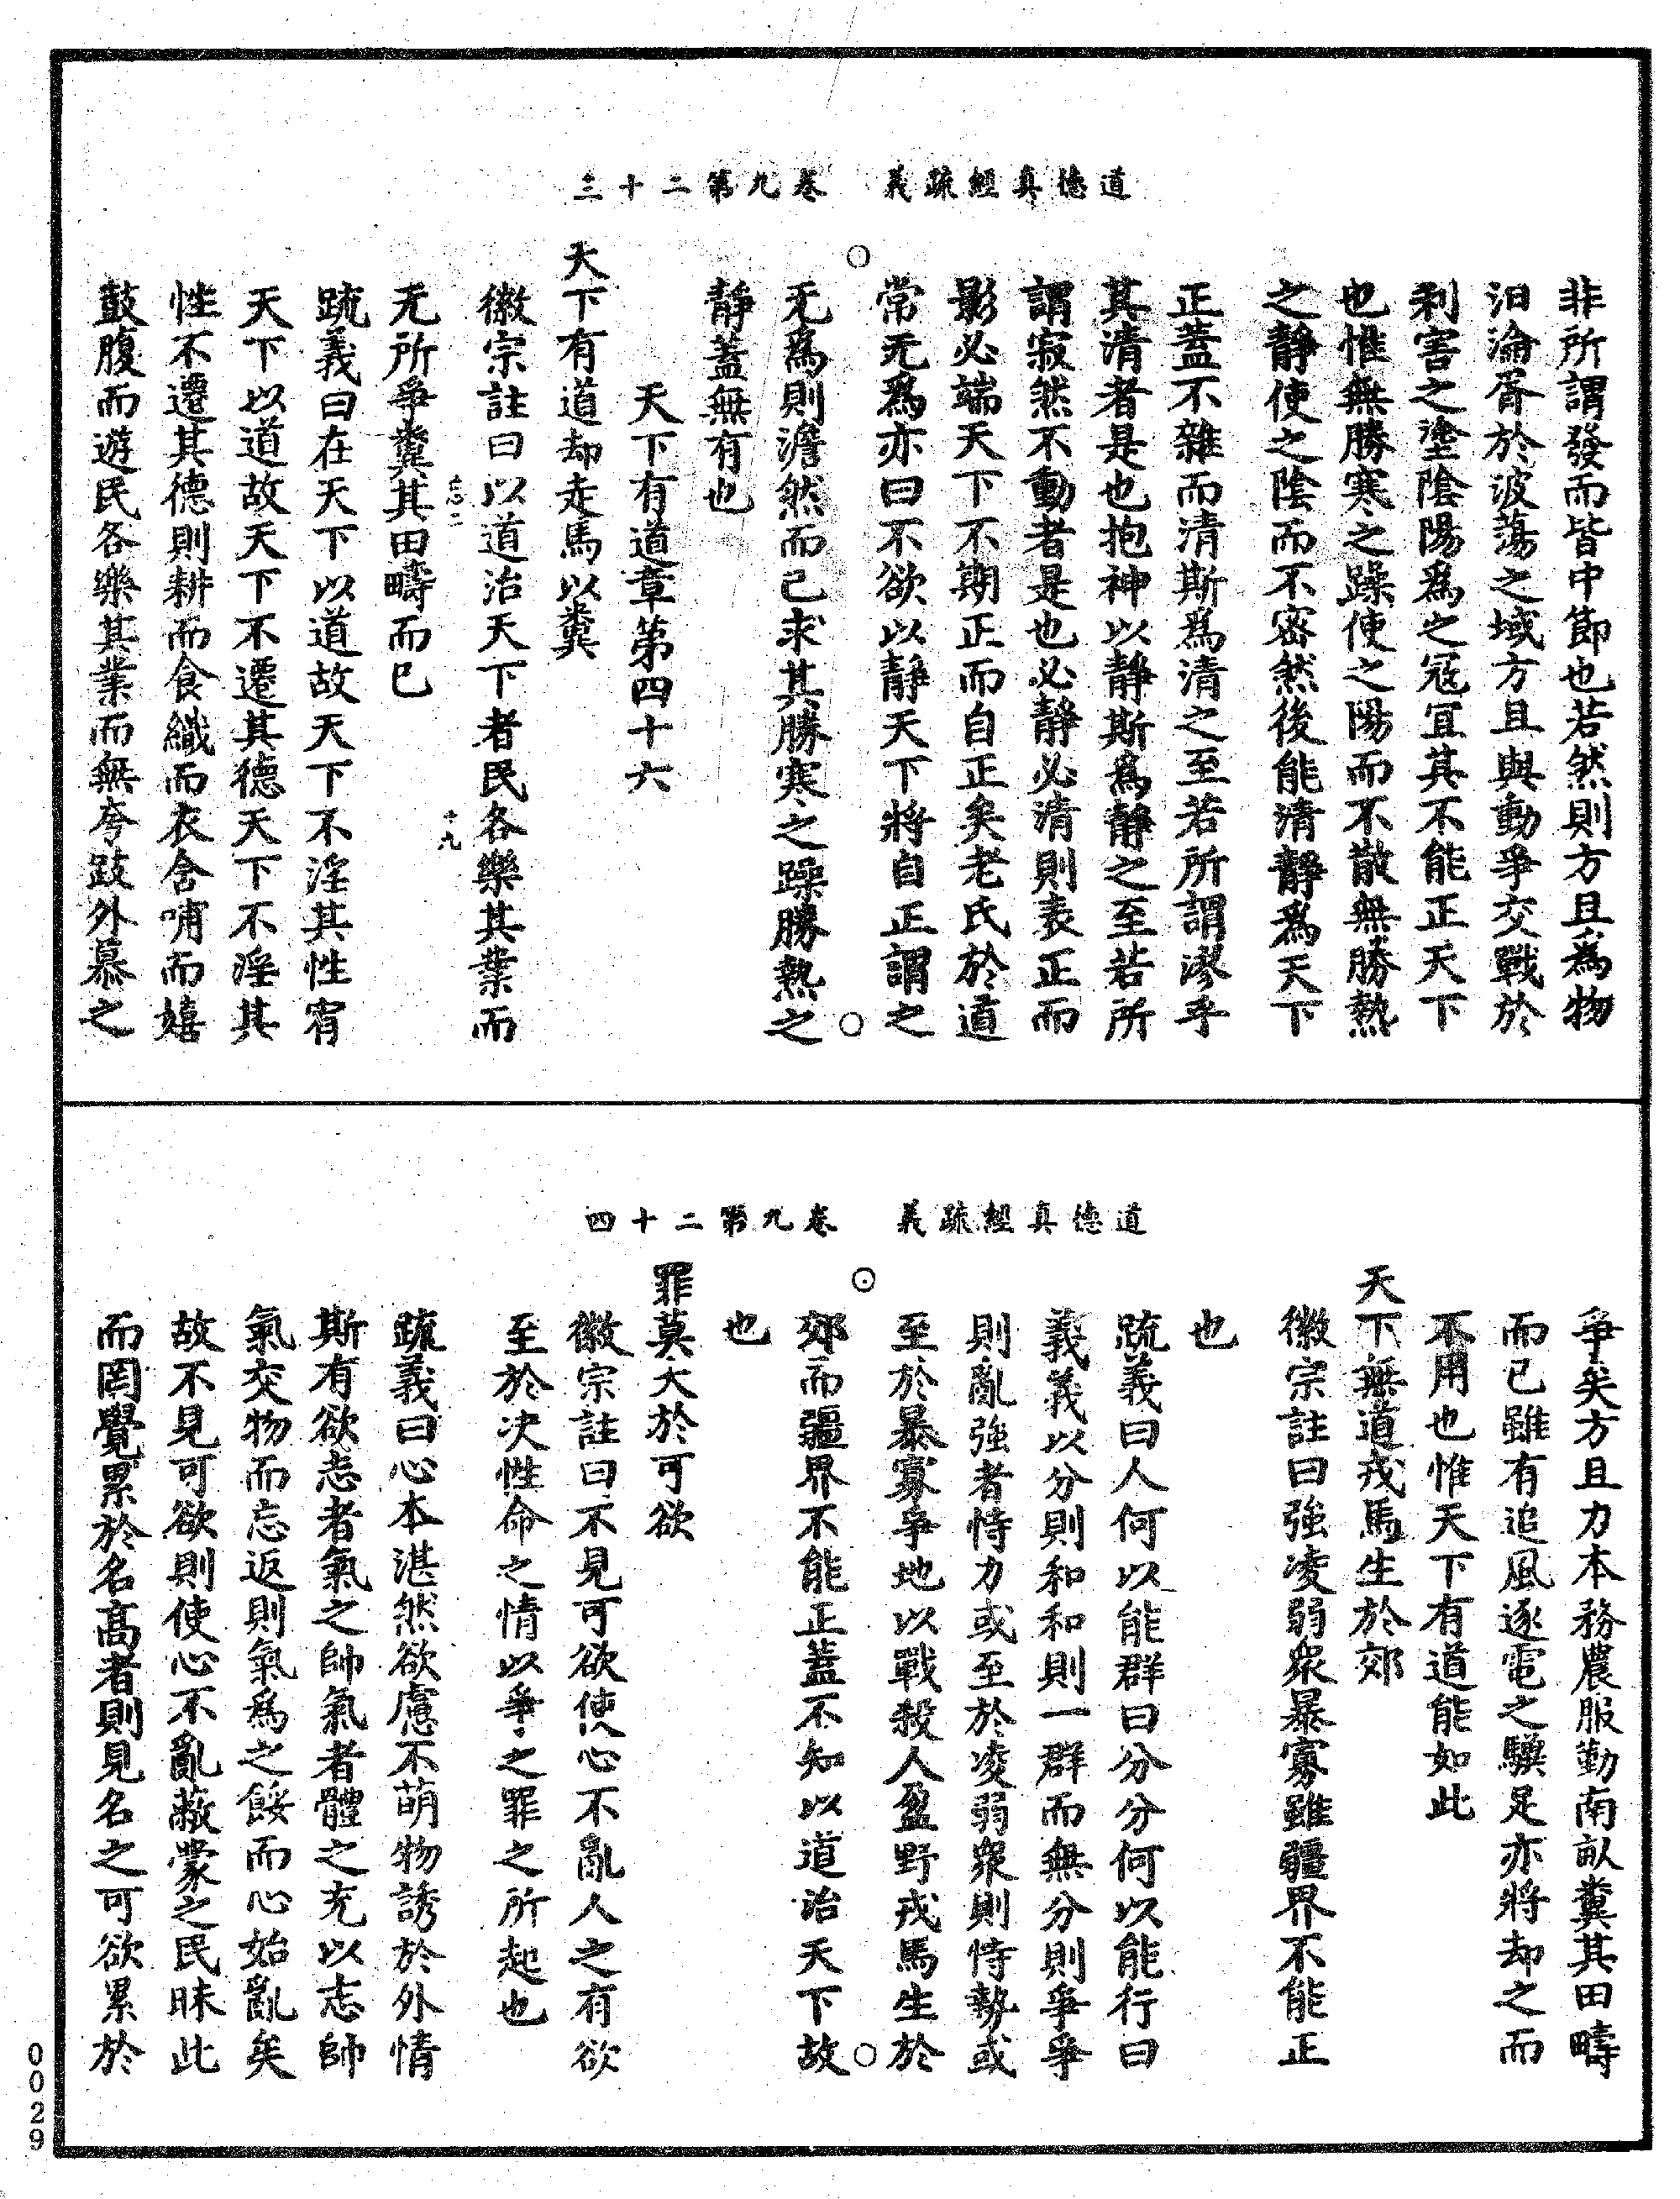 道德真經疏義　卷九第二十三
非所謂發而皆中節也若然則方且為物
汩淪胥於波蕩之域方且與動爭交戰於
利害之塗陰陽為之寇宜其不能正天下
也惟無勝寒之躁使之陽而不散無勝熱
之靜使之陰而不密然後能清靜為天下
正蓋不雜而清斯為清之至若所謂漻乎
其清者是也抱神以靜斯為靜之至若所
謂寂然不動者是也必靜必清則表正而
影必端天下不期正而自正矣老氏於道
常无為亦曰不欲以靜天下將自正謂之
无為則澹然而已求其勝寒之躁勝熱之
靜蓋無有也
天下有道章第四十六
天下有道却走馬以糞
徽宗註曰以道治天下者民各樂其業而
忘二　十九
无所爭糞其田疇而已
疏義曰在天下以道故天下不淫其性宥
天下以道故天下不遷其德天下不淫其
性不遷其德則耕而食織而衣含哺而嬉
鼓腹而遊民各樂其業而無夸跂外慕之
道德真經疏義　卷九第二十四
爭矣方且力本務農服勤南畝糞其田疇
而已雖有追風逐電之驥足亦將却之而
不用也惟天下有道能如此
天下無道戎馬生於郊
徽宗註曰強凌弱衆暴寡雖疆界不能正
也
疏義曰人何以能群曰分分何以能行曰
義義以分則和和則一群而無分則爭爭
則亂強者恃力或至於凌弱衆則恃勢或
至於暴寡爭地以戰殺人盈野戎馬生於
郊而疆界不能正蓋不知以道治天下故
也
罪莫大於可欲
徽宗註曰不見可欲使心不亂人之有欲
至於决性命之情以爭之罪之所起也
疏義曰心本湛然欲慮不萌物誘於外情
斯有欲志者氣之帥氣者體之充以志帥
氣交物而忘返則氣為之餒而心始亂矣
故不見可欲則使心不亂蔽蒙之民昧此
而罔覺累於名高者則見名之可欲累於
0029